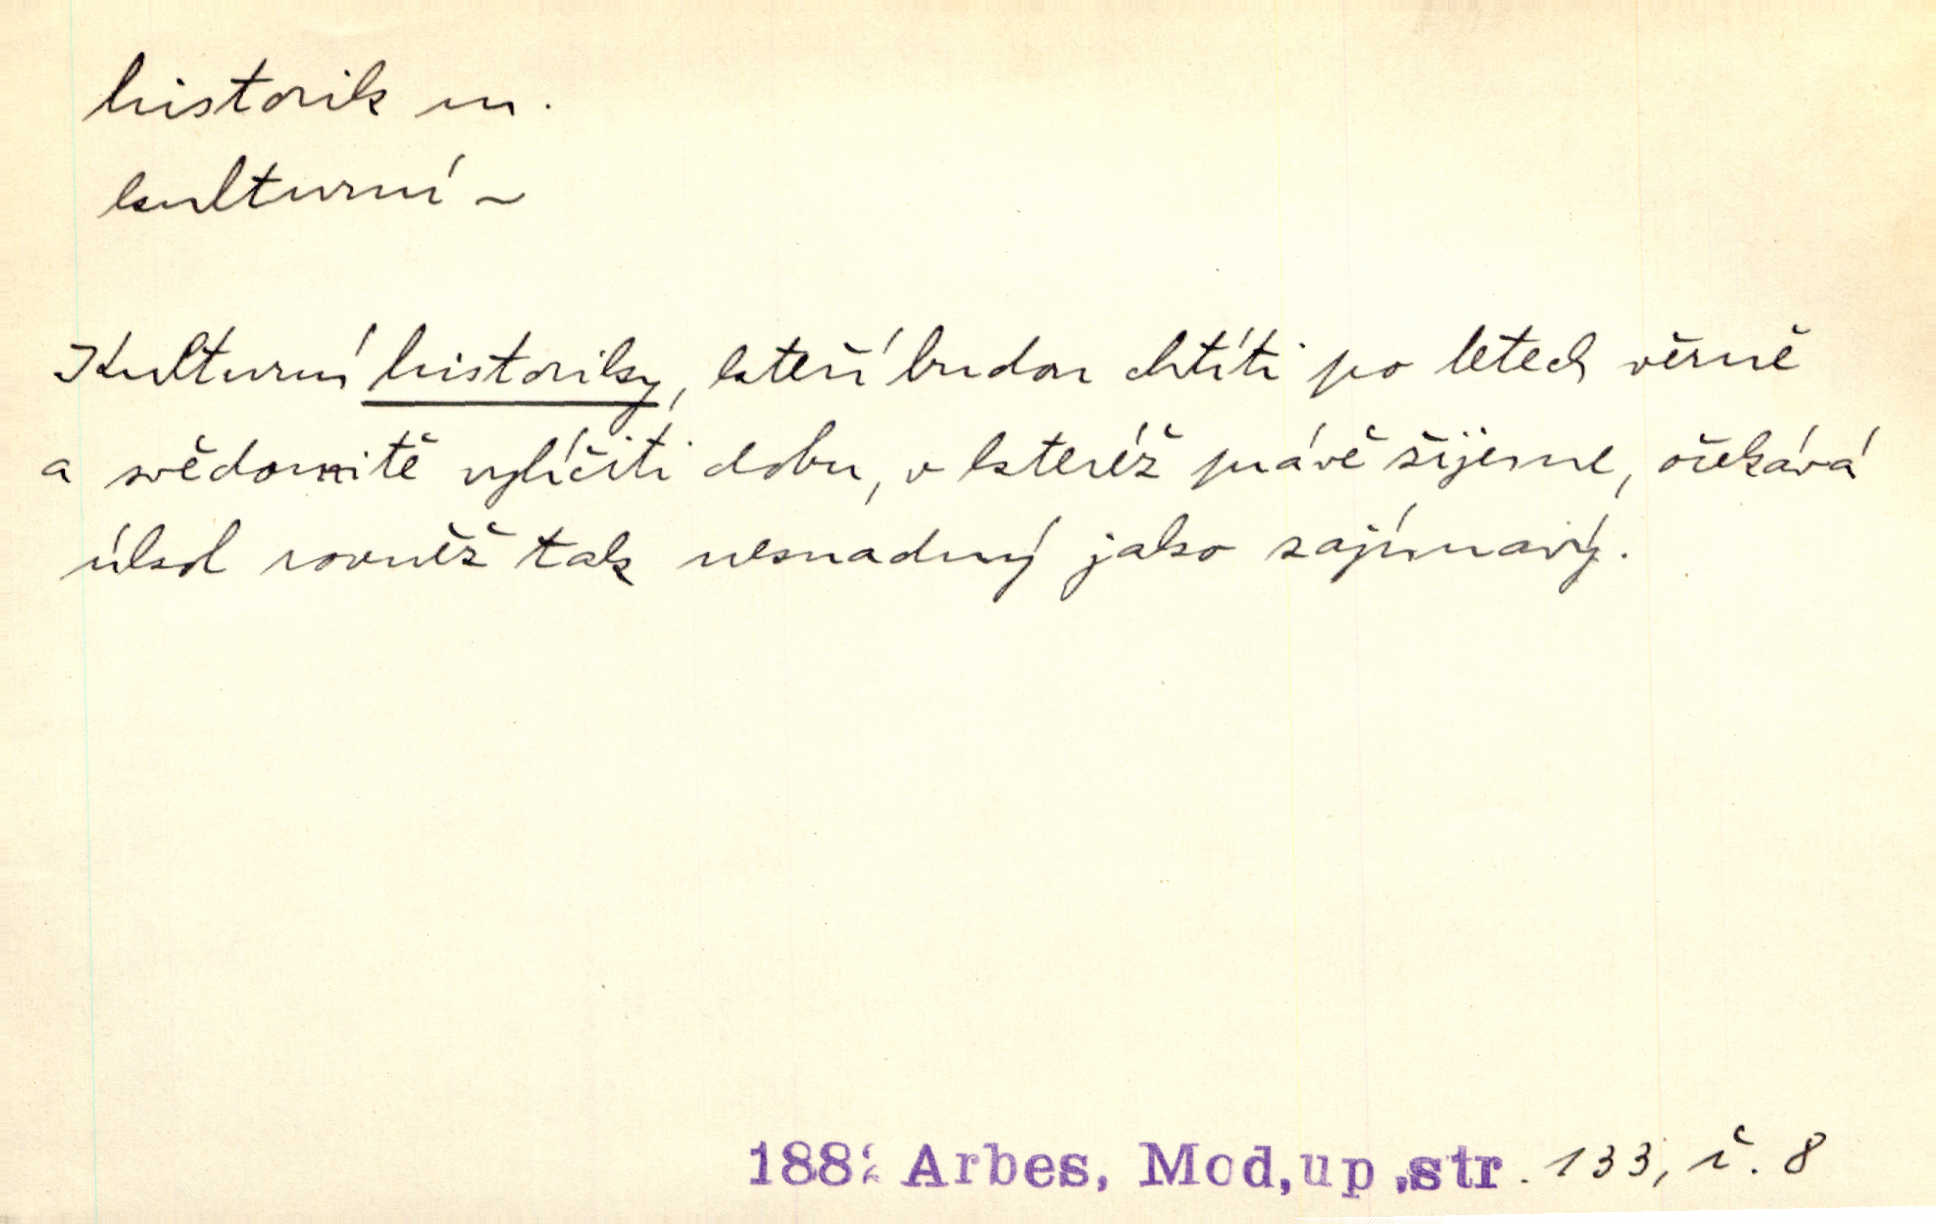 historik m.
kulturní ~
Kulturní historiky, kteří budou chtíti po letech věrně
a svědomitě vylíčiti dobu, v kteréž právě žijeme, očekává
úkol rovněž tak nesnadný jako zajímavý.
1882 Arbes, Mod,up,str. 133, č. 8